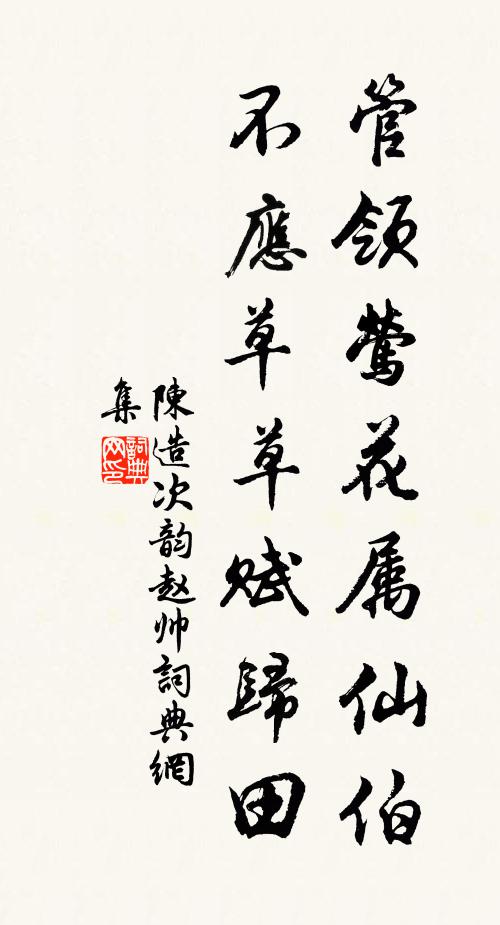 管領鶯花属仙伯
不應草草賦歸田
陳造次韵赵帅詞典網
集
詞典
网印